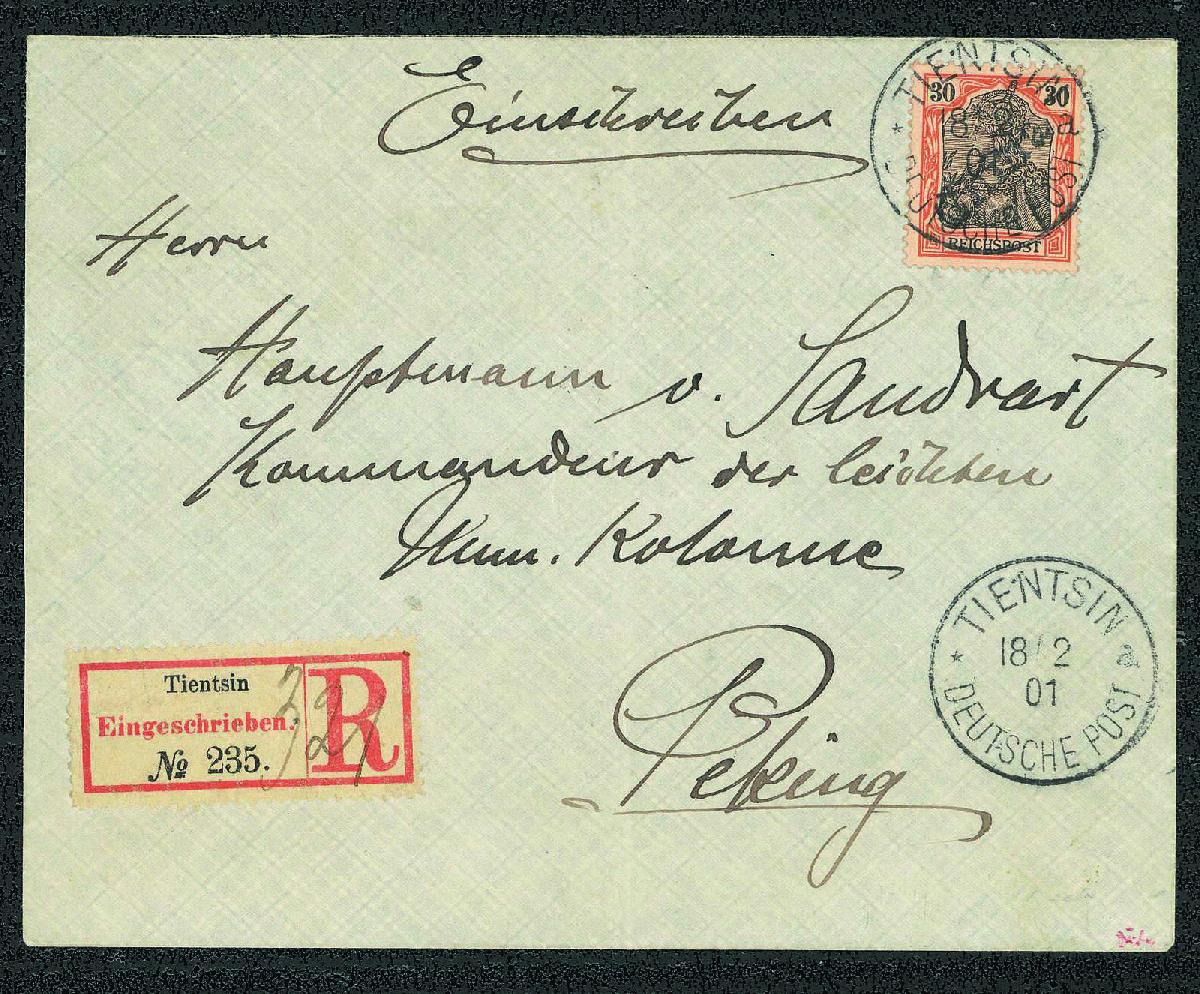 Einschreiben
TIENTSIN a
30 30
18/2
01
DEUTSCHE POST
REICHSPOST
Herrn
Hauptmann v. Sandrart
Kommandeur der leichten
Mun. Kolonne
Peking
TIENTSIN a
18/2
01
DEUTSCHE POST
Tientsin
Eingeschrieben.
№ 235.
R